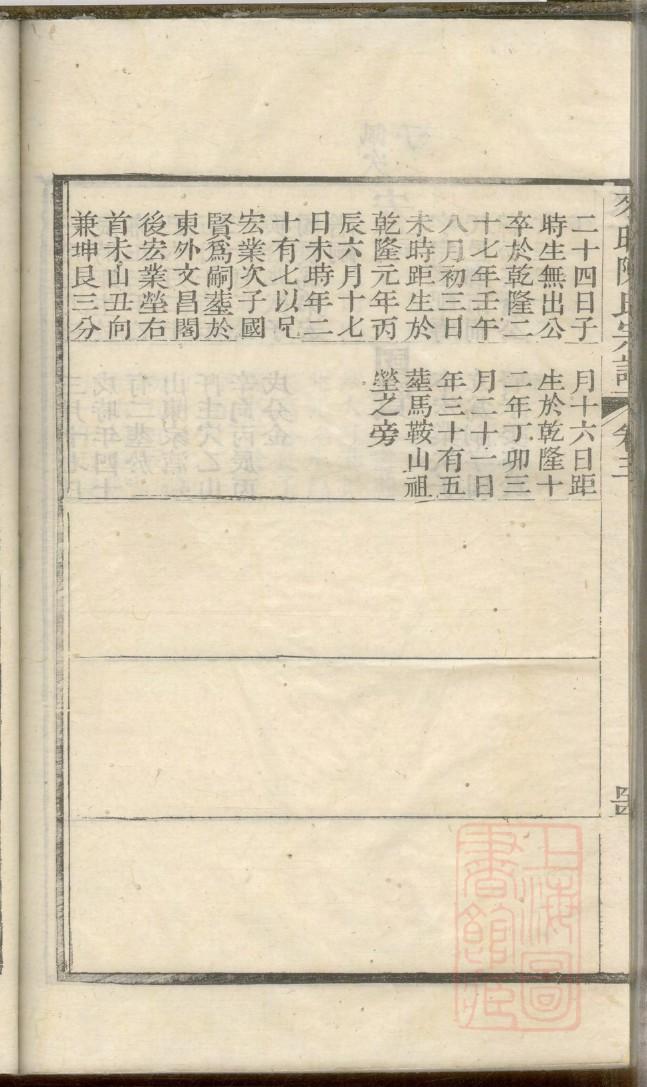 二十四日子
時生無出公
卒於乾隆二
十七年壬午
八月初三日
未時距生於
乾隆元年丙
辰六月十七
日未時年二
十有七以兄
宏業次子國
賢爲嗣塟於
東外文昌閣
後宏業塋右
首未山丑向
兼坤艮三分
月十六日距
生於乾隆十
二年丁卯三
月二十一日
年三十有五
塟馬鞍山祖
塋之旁
陳氏宗譜
卷三
上海圖書館藏